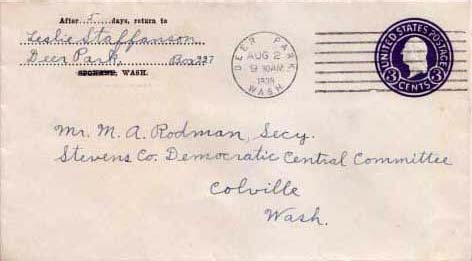 After 5 days, return to
Leslie Staffanson
Deer Park, Box 227
SPOKANE, WASH.
DEER PARK
AUG 2
9 30AM
1938
WASH.
UNITED STATES POSTAGE
3 CENTS 3
Mr. M. A. Rodman, Secy.
Stevens Co. Democratic Central Committee
Colville
Wash.